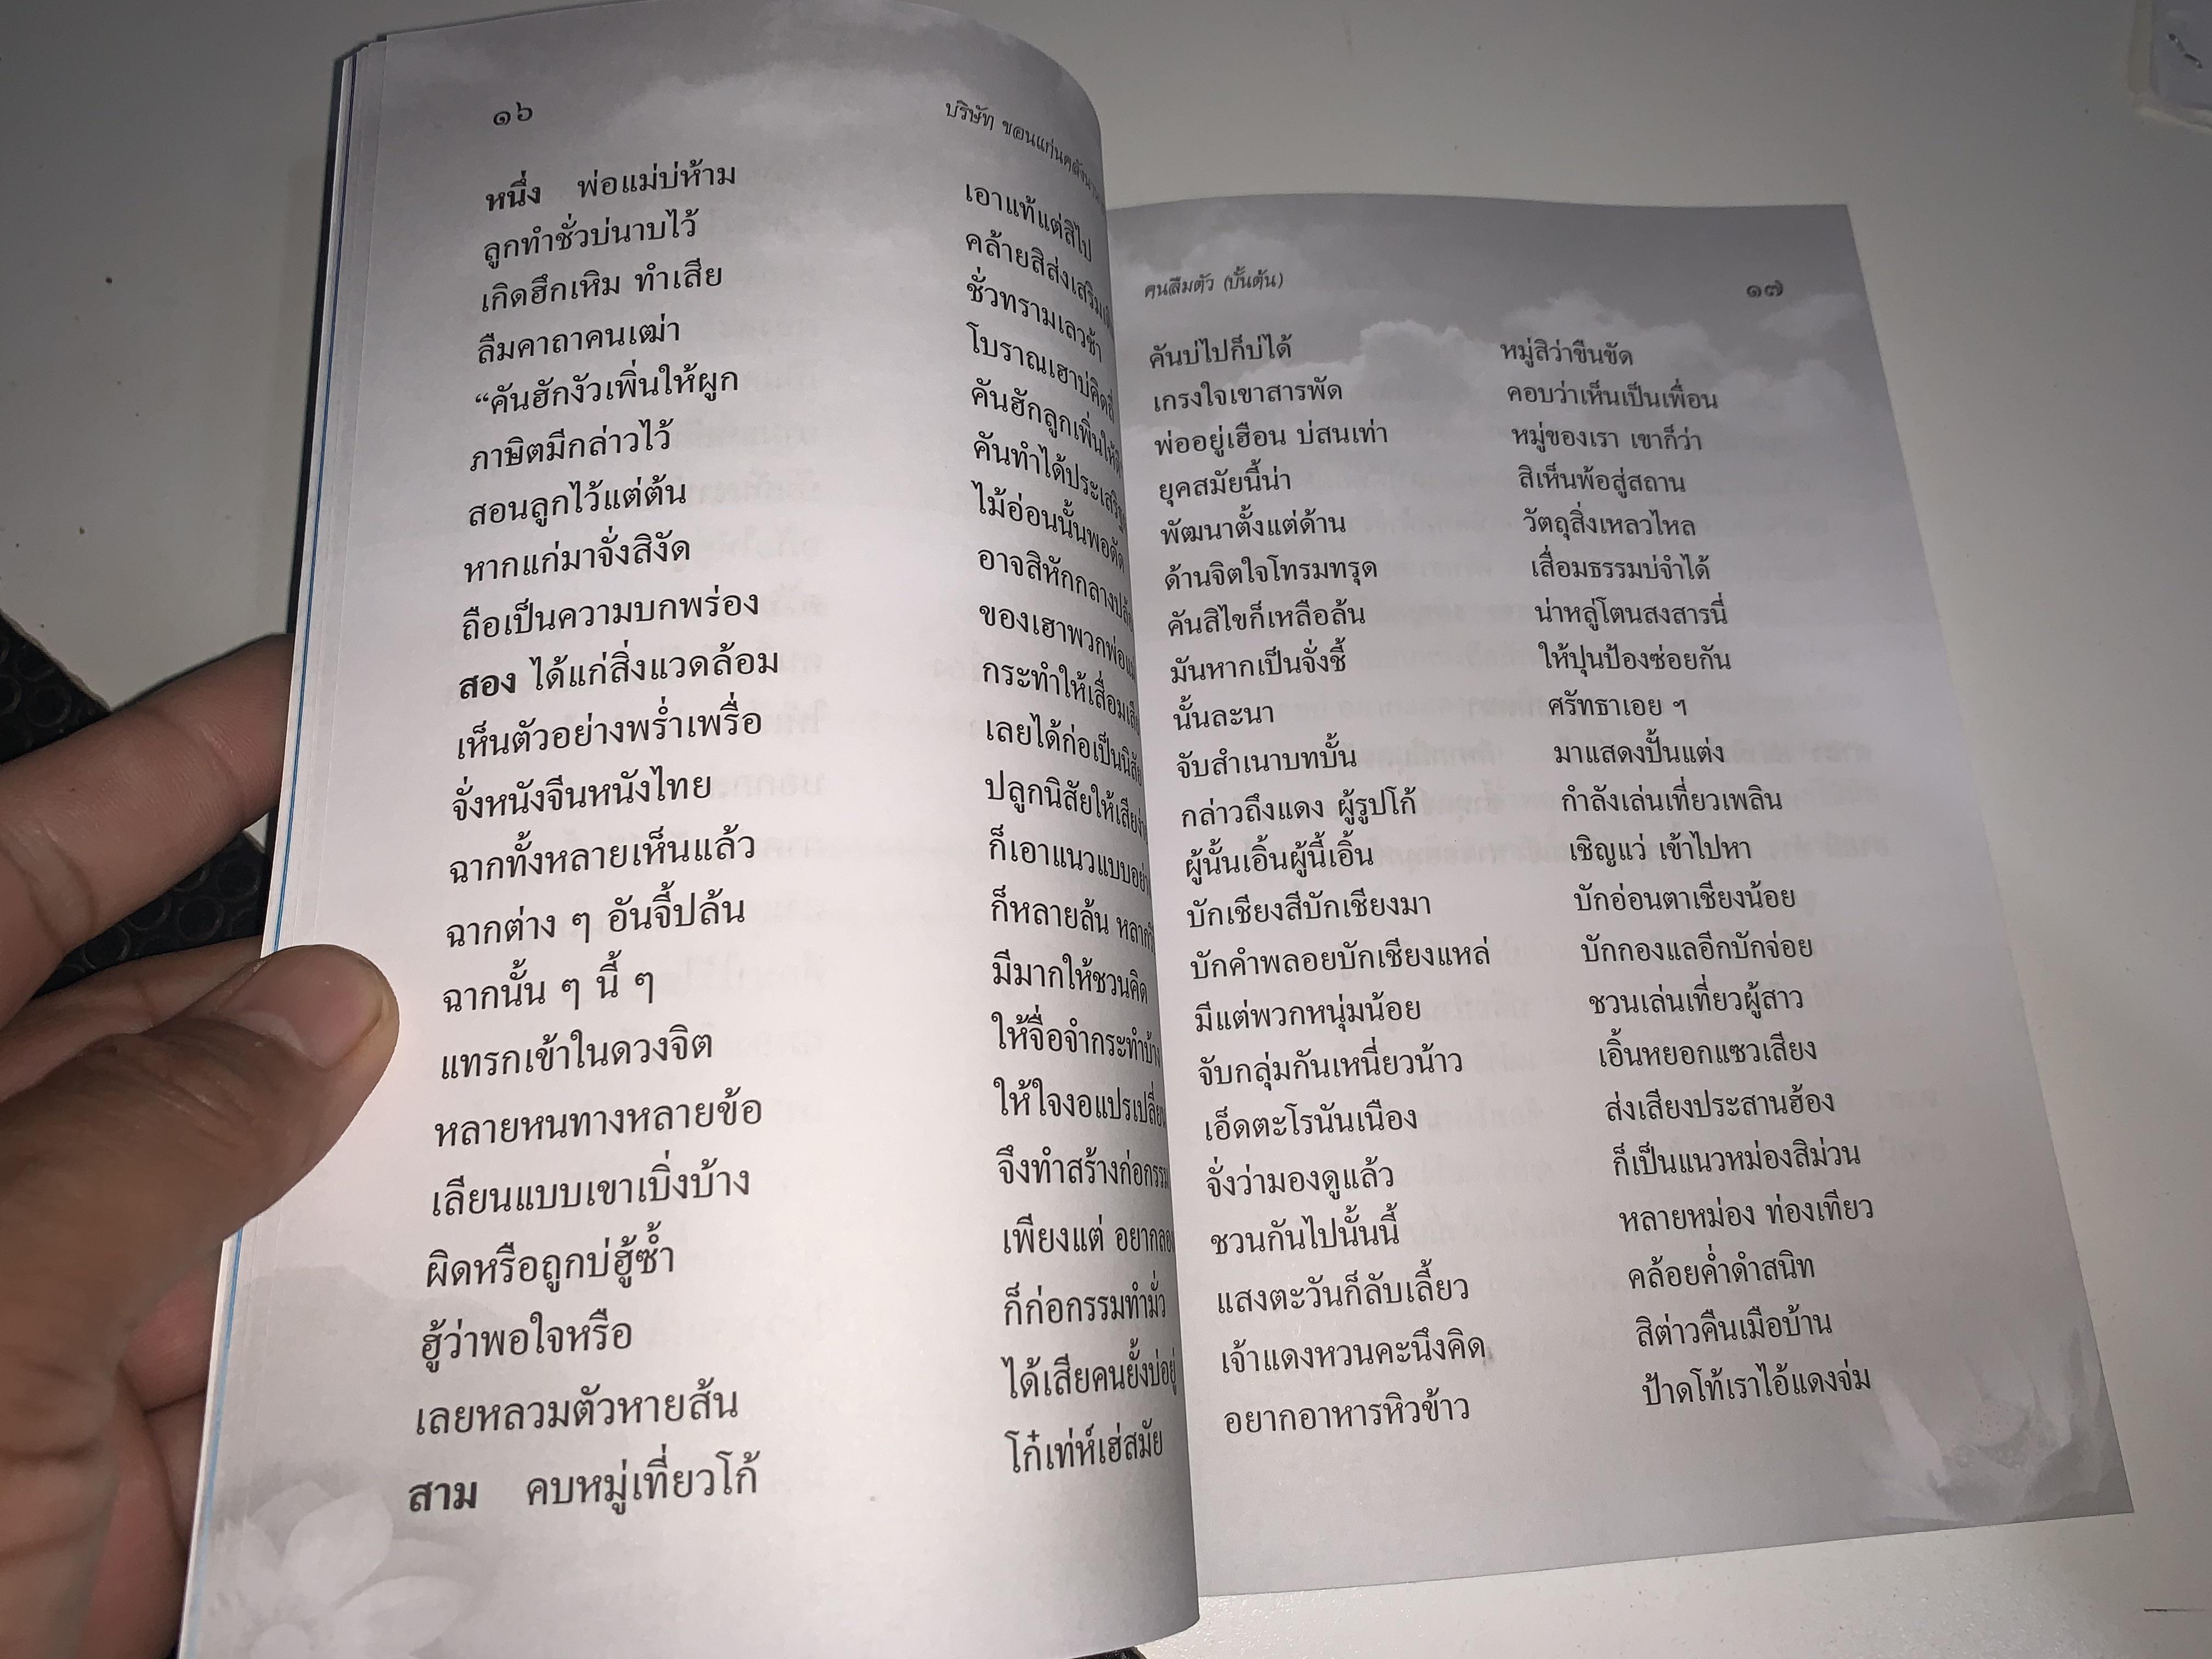 ๑๖ บริษัท ขอนแก่นคลังนานา
หนึ่ง พ่อแม่บ่ห้าม เอาแท้แต่สิไป
ลูกทำชั่วบ่นาบไว้ คล้ายสิส่งเสริม
เกิดฮึกเหิม ทำเสีย ชั่วทรามเลวช้า
ลืมคาถาคนเฒ่า โบราณเฮาบ่คิดถี่
“คันฮักงัวเพิ่นให้ผูก คันฮักลูกเพิ่นให้
ภาษิตมีกล่าวไว้ คันทำได้ประเสริฐ
สอนลูกไว้แต่ต้น ไม้อ่อนนั้นพอดัด
หากแก่มาจั่งสิงัด อาจสิหักกลางปล้อง
ถือเป็นความบกพร่อง ของเฮาพวกพ่อแม่
สอง ได้แก่สิ่งแวดล้อม กระทำให้เสื่อมเสีย
เห็นตัวอย่างพร่ำเพรื่อ เลยได้ก่อเป็นนิสัย
จั่งหนังจีนหนังไทย ปลูกนิสัยให้เสีย
ฉากทั้งหลายเห็นแล้ว ก็เอาแนวแบบอย่าง
ฉากต่าง ๆ อันจี้ปล้น ก็หลายล้น
ฉากนั้น ๆ นี้ ๆ มีมากให้ชวนคิด
แทรกเข้าในดวงจิต ให้จื่อจำกระทำบ้าง
หลายหนทางหลายข้อ ให้ใจงอแปรเปลี่ยน
เลียนแบบเขาเบิ่งบ้าง จึงทำสร้างก่อกรรม
ผิดหรือถูกบ่ฮู้ซ้ำ เพียงแต่ อยากลอง
ฮู้ว่าพอใจหรือ ก็ก่อกรรมทำมั่ว
เลยหลวมตัวหายส้น ได้เสียคนยั้งบ่อยู่
สาม คบหมู่เที่ยวโก้ โก๋เท่ห์เฮ่สมัย
คนลืมตัว (บั้นต้น) ๑๗
คันบ่ไปก็บ่ได้ หมู่สิว่าขืนขัด
เกรงใจเขาสารพัด คอบว่าเห็นเป็นเพื่อน
พ่ออยู่เฮือน บ่สนเท่า หมู่ของเรา เขาก็ว่า
ยุคสมัยนี้น่า สิเห็นพ้อสู่สถาน
พัฒนาตั้งแต่ด้าน วัตถุสิ่งเหลวไหล
ด้านจิตใจโทรมทรุด เสื่อมธรรมบ่จำได้
คันสิไขก็เหลือล้น น่าหลู่โตนสงสารนี่
มันหากเป็นจั่งชี้ ให้ปุนป้องซ่อยกัน
นั้นละนา ศรัทธาเอย ฯ
จับสำเนาบทบั้น มาแสดงปั้นแต่ง
กล่าวถึงแดง ผู้รูปโก้ กำลังเล่นเที่ยวเพลิน
ผู้นั้นเอิ้นผู้นี้เอิ้น เชิญแว่ เข้าไปหา
บักเชียงสีบักเชียงมา บักอ่อนตาเชียงน้อย
บักคำพลอยบักเชียงแหล่ บักกองแลอีกบักจ่อย
มีแต่พวกหนุ่มน้อย ชวนเล่นเที่ยวผู้สาว
จับกลุ่มกันเหนี่ยวน้าว เอิ้นหยอกแซวเสียง
เอ็ดตะโรนันเนือง ส่งเสียงประสานฮ้อง
จั่งว่ามองดูแล้ว ก็เป็นแนวหม่องสิม่วน
ชวนกันไปนั้นนี้ หลายหม่อง ท่องเทียว
แสงตะวันก็ลับเลี้ยว คล้อยค่ำดำสนิท
เจ้าแดงหวนคะนึงคิด สิต่าวคืนเมือบ้าน
อยากอาหารหิวข้าว ป้าดโท้เราไอ้แดงจ่ม